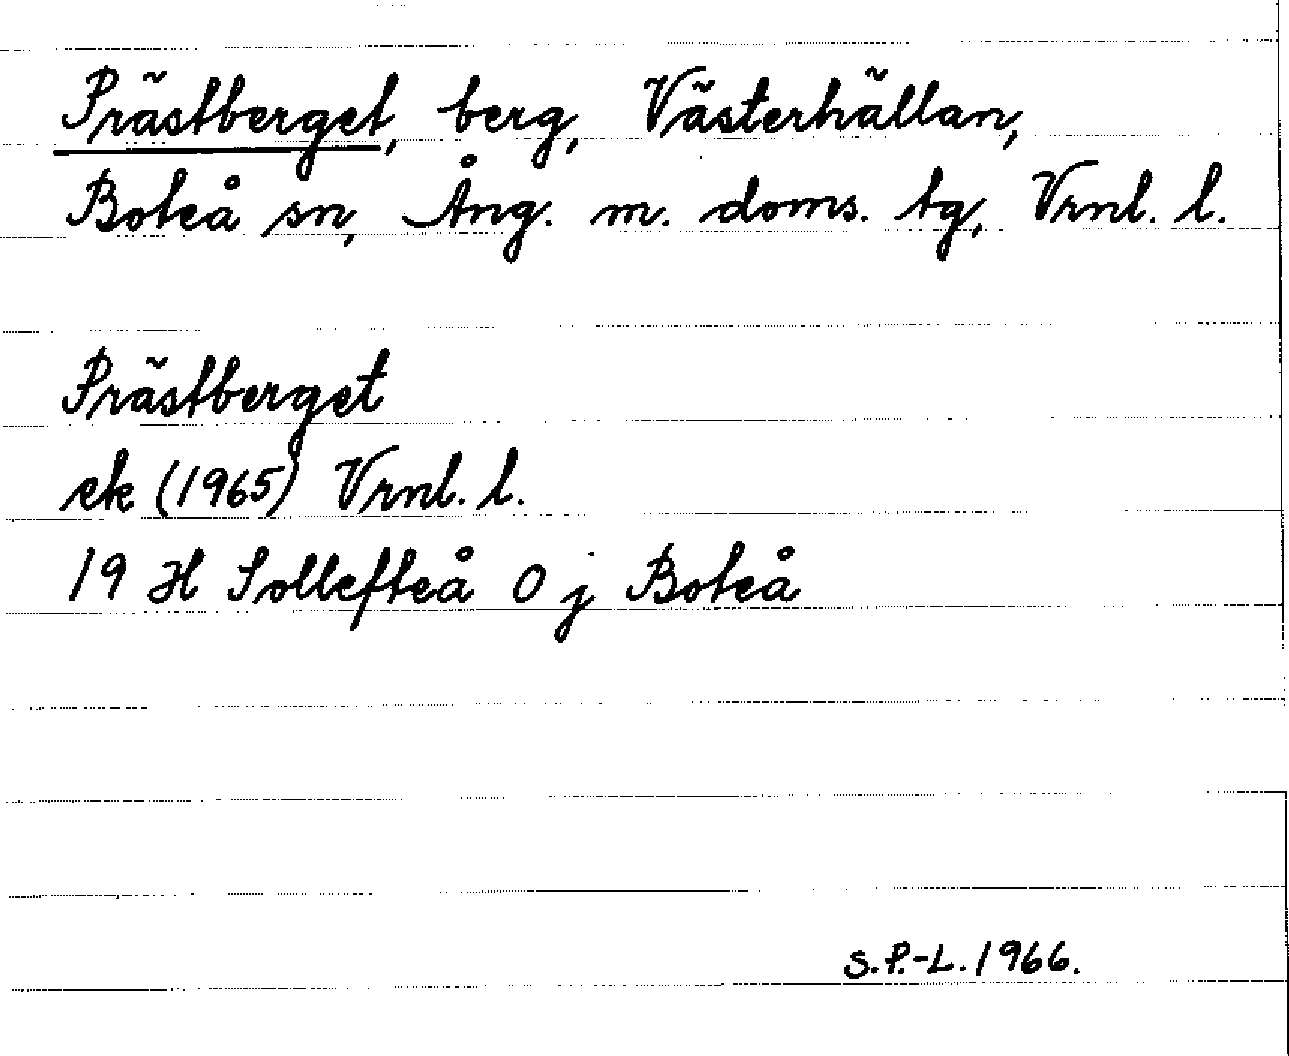 Prästberget, berg, Västerhällan,
Boteå sn, Ång. m. doms. tg, Vrnl. l.
Prästberget
ek (1965) Vrnl. l.
19 H Sollefteå 0 j Boteå
S.P.-L. 1966.